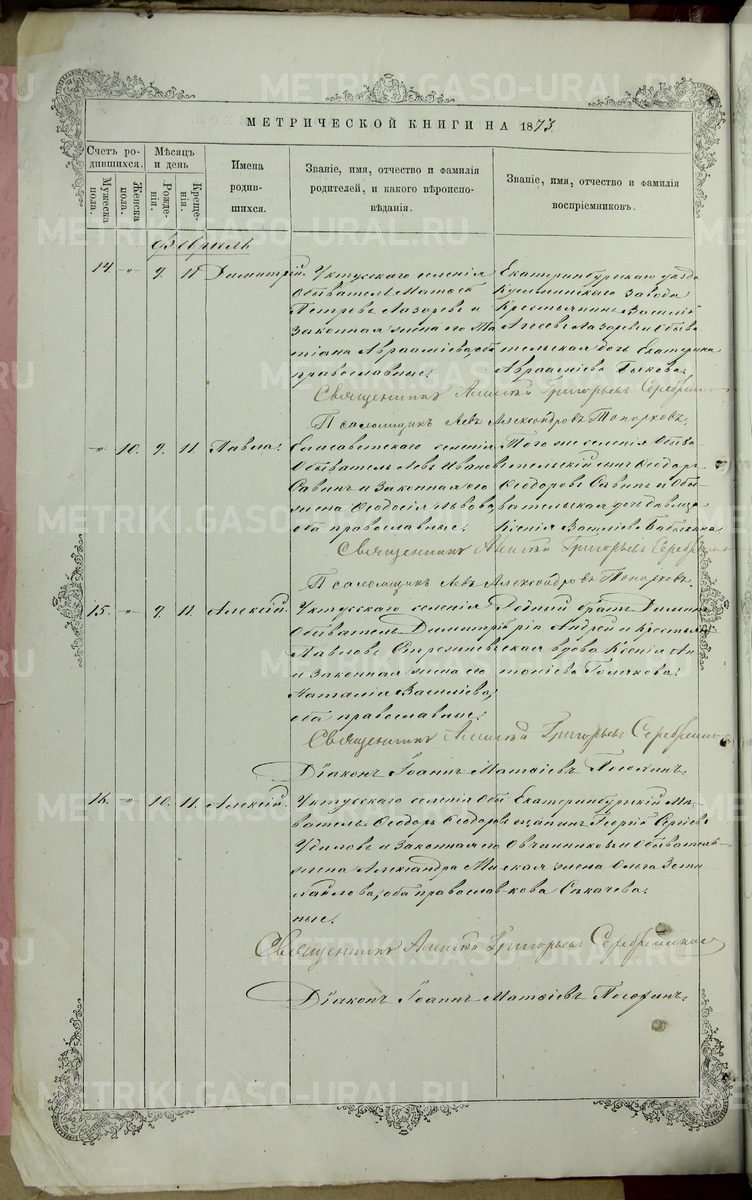 МЕТРИЧЕСКОЙ КНИГИ НА 1873.
Счетъ родившихся.
Мужеска пола.
Женска пола.
Мѣсяцъ и день
Рожденія.
Крещенія.
Имена родившихся.
Званіе, имя, отчество и фамилія родителей, и какого вѣроисповѣданія.
Званіе, имя, отчество и фамилія воспріемниковъ.
Февраль
14. „ 9. 11. Димитрій.
Уктусскаго селенія
Обыватель Матвѣй
Петровъ Лазаревъ и
Законная жена его Та
тіана Авраамiева, оба
православные;
Екатеринбургскаго уѣзда
завода
Крестьянинъ Василій
Лазаревъ и Обыва
тельская дочь Екатерина
Авраамiева
Священникъ Григорьевъ
Псаломщикъ Левъ Александровъ Топорковъ.
„ 10. 9. 11. Павла;
Елисаветскаго селенія
Обыватель Левъ Иванов
Савинъ и Законная его
жена Ѳеодосія Львова,
оба православные;
Того же селенія Обыва
тельскій сынъ Ѳеодоръ
Ѳеодоровъ Савинъ и Обы
вательская дочь дѣвица
Ксенія Василіева
Священникъ Григорьевъ
Псаломщикъ Левъ Александровъ Топорковъ.
15. „ 9. 11. Алексій.
Уктусскаго селенія
Обыватель Димитрій
Павловъ
и Законная жена его
Наталія Василіева,
оба православные;
Родный братъ Дими
трія Андрей и Крестьян
ская вдова Ксенія Ан
тоніева
Священникъ Григорьевъ
Діаконъ Іоаннъ Матѳіевъ
16. „ 10. 11. Алексій.
Уктусскаго селенія Обы
ватель Ѳеодоръ Ѳеодоровъ
и Законная его
жена Александра Ми
хайлова, оба православ
ные;
Екатеринбургскій Мѣ
щанинъ Георгій Сергіевъ
Овчинниковъ и Обыватель
ская жена Ольга
Священникъ Григорьевъ
Діаконъ Іоаннъ Матѳіевъ
METRIKI.GASO-URAL.RU